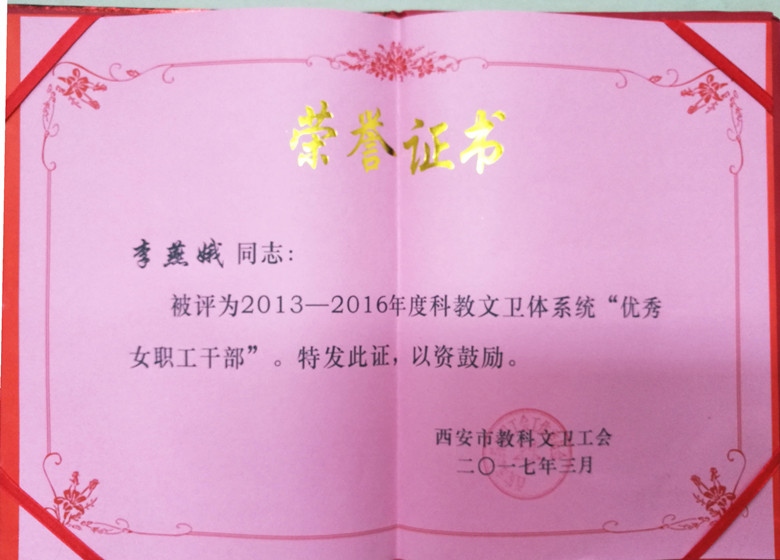 荣誉证书
李燕娥 同志：
被评为2013—2016年度科教文卫体系统“优秀
女职工干部”。特发此证，以资鼓励。
西安市教科文卫工会
二〇一七年三月